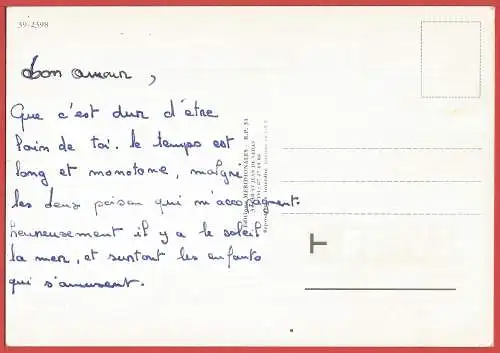 39-2398
bon amour,
Que c'est dur d'être
loin de toi. le temps est
long et monotome, malgré
les deux poison qui m'accopagnent.
heureusement il y a le soleil
la mer, et surtout les enfants
qui s'amusent.
Editions MERIDIONALES - B.P. 53
T